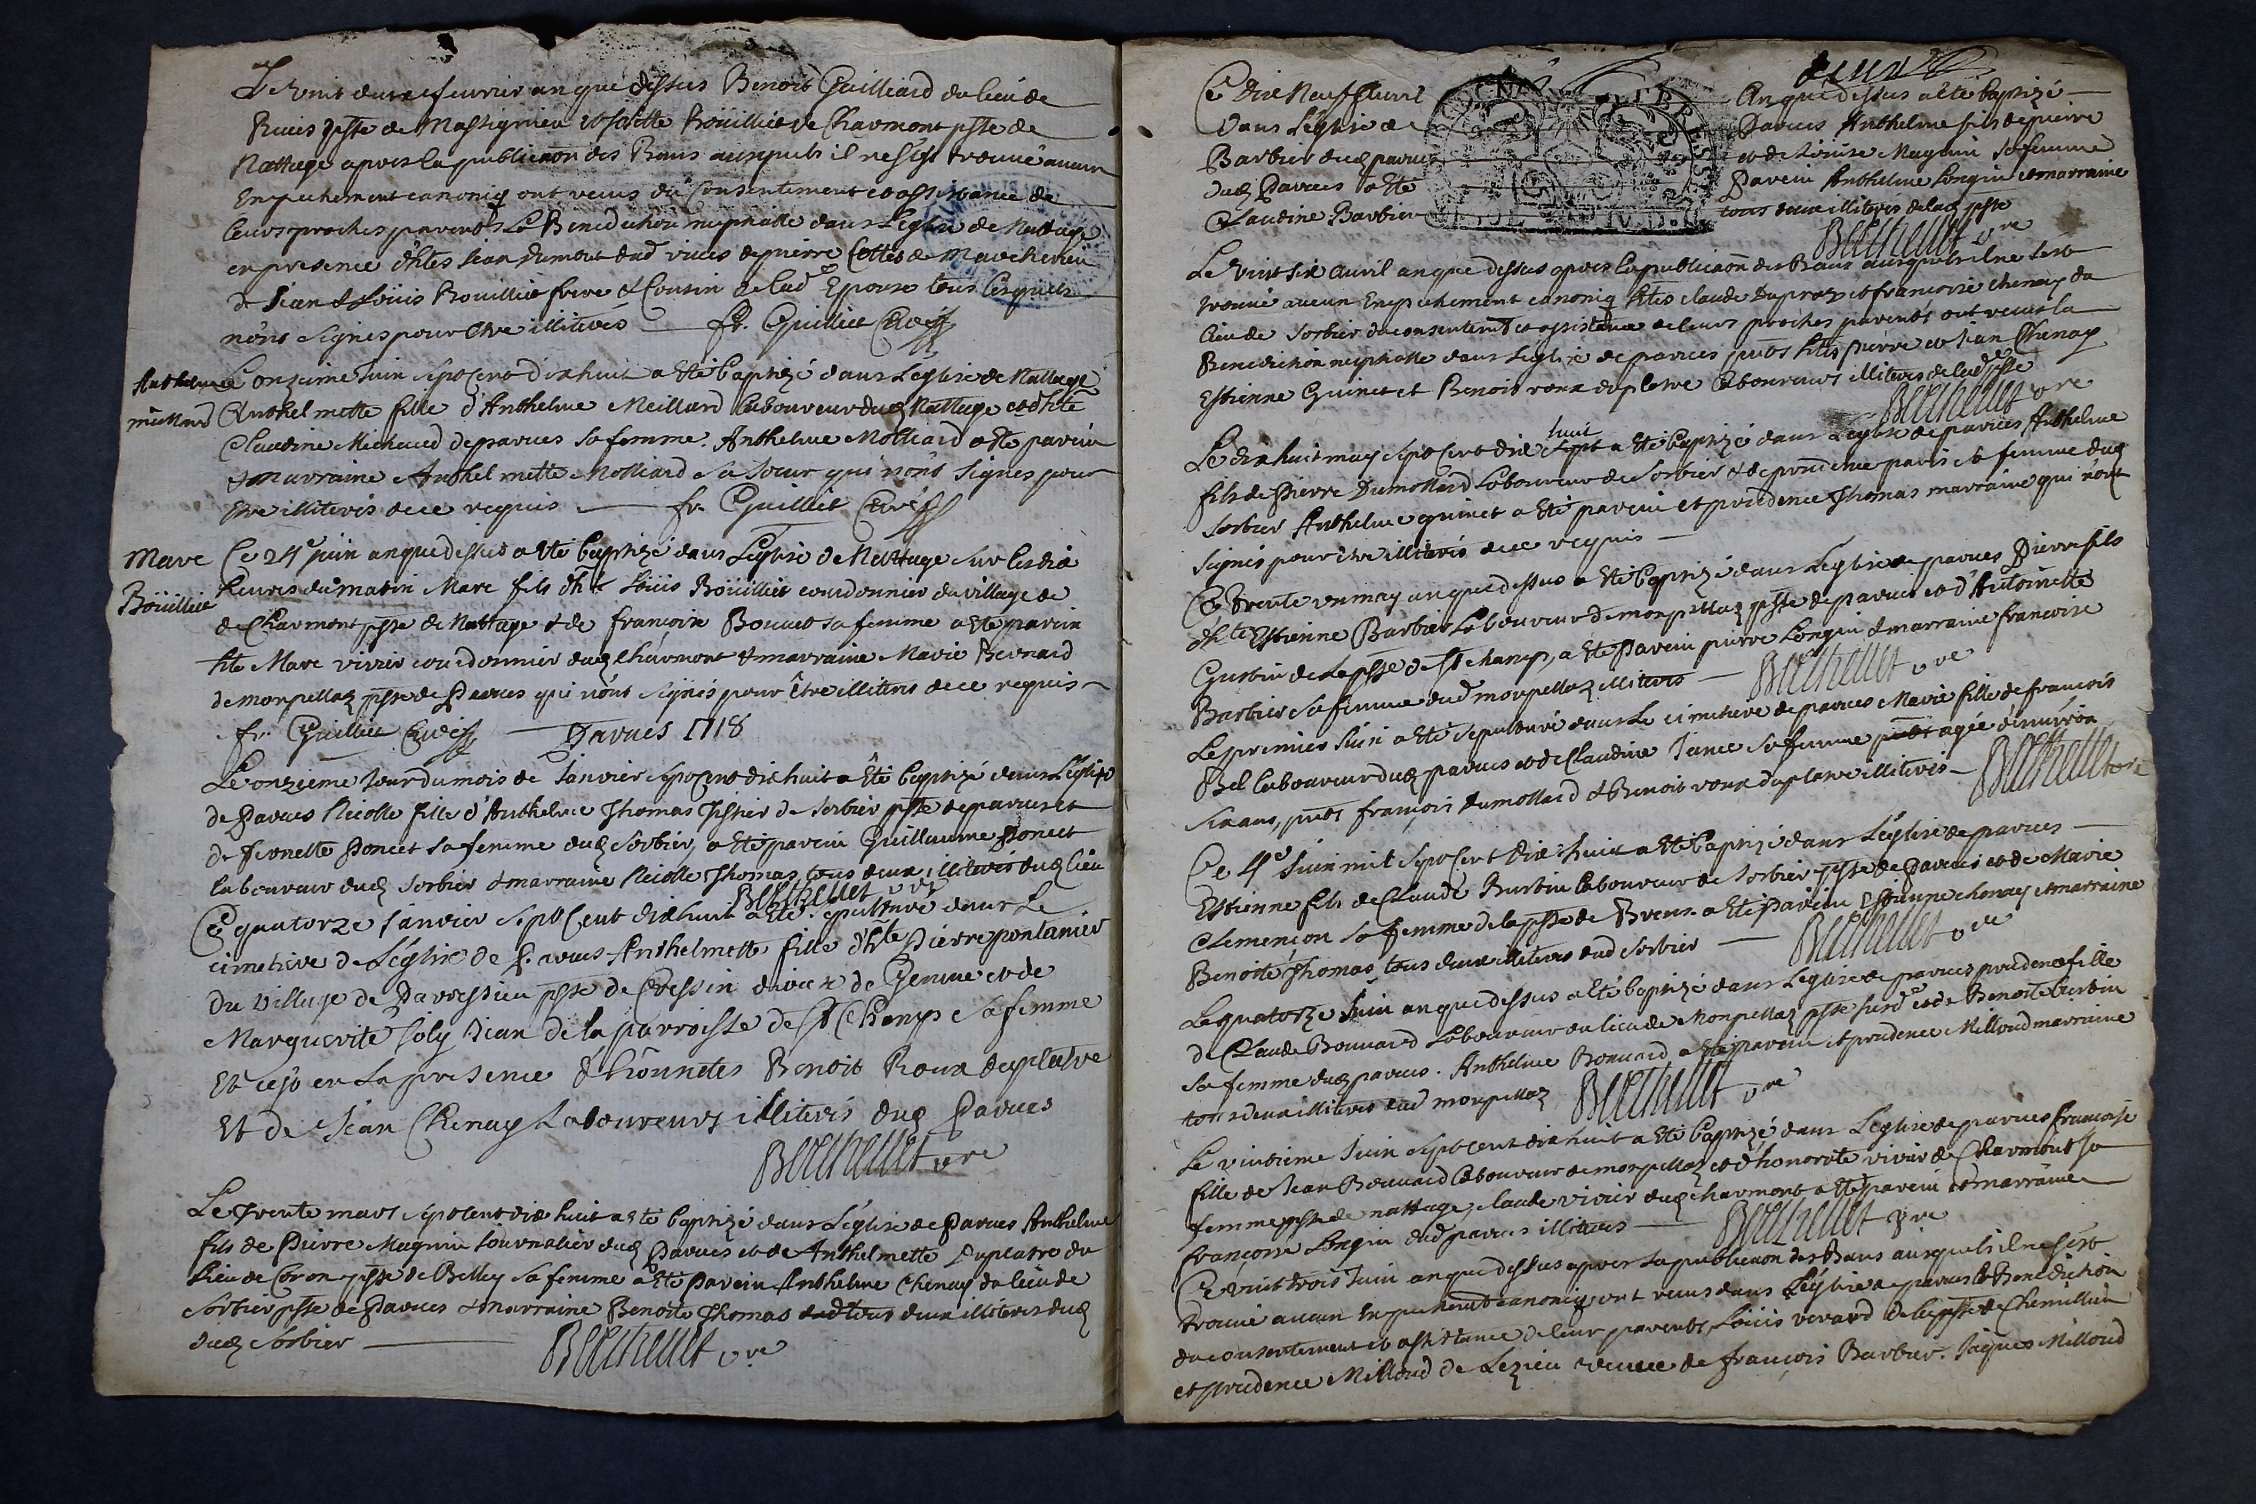 Le vint deux feuvrier an que dessus Benoit Guilliard du lieu de
psse de Massignieu et Bouillié de Charmont psse de
Nattage apres la publicaon des Bans ausquels il ne s'est trouvé aucun
Empechement canoniq ont receus du Consentement et assistance de
leurs proches parents La Benediction nuptialle dans L'eglise de Nattage
en presence d'htes Jean Dumont dud de pierre de Marchenieu
de Jean & Loüis Bouillié frere & Cousin de lad Epouse tous lesquels
n'ont signes pour etre illiteres fr. Guilliet Curé
Anthelmette
meillard
Le onzieme Juin sept cent dixhuit a eté baptizé dans L'eglise de Nattage
Anthelmette fille d'Anthelme Meillard laboureur dud Nattage et d'hte
Claudine Michaud de parves sa femme. Anthelme Molliard a ete parein
& marraine Anthelmette Molliard sa soeur qui n'ont signes pour
etre illiteres de ce requis fr. Guilliet Curé
Marc
Boüillié
Ce 24e juin an que dessus a ete baptizé dans L'eglise de Nattage sur les dix
heures du matin Marc fils d'hte Loüis Boüillié courdonnier du village de
de Charmont psse de Nattage & de françoise Bouvet sa femme a ete parein
hte Marc vivier courdonnier dud Charmont & marraine Marie Bernard
de monpellaz psse de Parves qui n'ont signés pour être illiteres de ce requis
fr. Guilliet Curé Parves 1718
Le onzeeme Jour du mois de Janvier sept cent dixhuit a êté baptizé dans L'eglise
de Parves Nicolle fille d'Anthelme Thomas Tissier de Sorbier psse de parves et
de Jeonette Poncet sa femme dud Sorbier, a eté parein Guillaume Poncet
laboureur dud Sorbier & marraine Nicolle Thomas tous deux illiteres dud lieu
Berthelet vre
Ce quatorze Janvier sept Cent dixhuit a eté sepulturé dans Le
cimetiere de L'eglise de Parves Anthelmette fille d'hte Pierre pontanier
du village de Parressieu psse de Cressin de Geneve et de
Marguerite Joly Jean de la parroisse de St Champ sa femme
Et ce en la presence d'honnetes Benoit Roux duplatre
Et de Jean Chenay Laboureurs illiteris dud Parves
Berthelet vre
Le trente mars sept cent dixhuit a ete baptizé dans L'eglise de Parves Anthelme
fils de Pierre Magnin Journalier dud Parves et de Anthelmette Duplatre du
lieu de Coron psse de Belley sa femme a eté Parein Anthelme Chenay du lieu de
Sorbier psse de Parves & marraine Benoite Thomas tous deux illiteris dud
dud Sorbier
Berthelet vre
deux
Ce Dix Neuf fevrié An que dessus a ete baptizé
dans L'eglise de Parves Anthelme fils de pierre
Barbier dud parves et de Loüise Magnin sa femme
dud Parves a ete Parein Anthelme Longin & marraine
Claudine Barbier tous deux illiteres de lad psse
Berthelet vre
Le vint six avril an que dessus apres la publicaon des Bans ausquels il ne s'est
trouvé aucun Empechement canoniq htes claude Dupraz et francoise chenay du
lieu de Sorbier du consentemt et assistance de leurs proches parents ont receus la
Benediction nuptialle dans L'eglise de parves puts htes Pierre et Jean Chenay
Estienne Guinet et Benoit roux duplatre laboureurs illiteres de lad psse
Berthelet vre
Le dix huit may sept cent dix huit a eté baptizé dans L'eglise de parves Anthelme
fils de Pierre Dumollard Laboureur de Sorbier & de prudence paris sa femme dud
Sorbier Anthelme guinet a eté parein et prudence Thomas marraine qui n'ont
signés pour être illiteris de ce requis
Ce trente un may an que dessus a eté baptizé dans L'eglise de parves Pierre fils
d'hte Estienne Barbier Laboureur de monpellaz psse de parves et d'Antoinette
Gustin de La psse de St champ, a eté Parein pierre Longin & marraine francoise
Barbier sa femme dud monpellaz illiteres Berthelet vre
Le premier Juin a eté sepulturé dans Le cimetiere de parves Marie fille de francois
Bel laboureur dud parves et de Claudine Janes sa femme agée d'environ
six ans, puts françois dumollard & Benoit roux duplatre illiteris
Berthelet vre
Ce 4e Juin mil sept Cent dix huit a eté baptizé dans L'eglise de parves
Estienne fils de Claude Burtin laboureur de Sorbier psse de Parves et de Marie
Clemençon sa femme de la psse de Brens. a eté Parein Estienne chenay & marraine
Benoite Thomas tous deux illiteres dud Sorbier
Berthelet vre
Le quatorze Juin an que dessus a eté baptizé dans L'eglise de parves prudence fille
de Claude Bouvard Laboureur du lieu de Monpellaz psse susd et de Benoite burtin
sa femme dud parves. Anthelme Bouvard a eté parein et prudence Milloud marraine
tous deux illiteres dud monpellaz Berthelet vre
Le vintieme Juin sept cent dixhuit a eté baptizé dans L'eglise de parves francoise
fille de Jean Bouvard laboureur de monpellaz et d'honorate vivier de Charmont sa
femme psse de nattage, claude vivier dud charmont a eté parein & marraine
françoise Longin dud parves illiteres Berthelet vre
Ce vint trois Juin an que dessus apres La publicaon des Bans ausquels il ne s'est
trouvé aucun Empechemt canoniq ont receus dans L'eglise de parves la Benediction
du consentement et assistance de leur parents, Loüis verard de la psse de Chemillieu
et prudence Milloud de Lezieu veuve de françois Barbier. Jaques Milloud